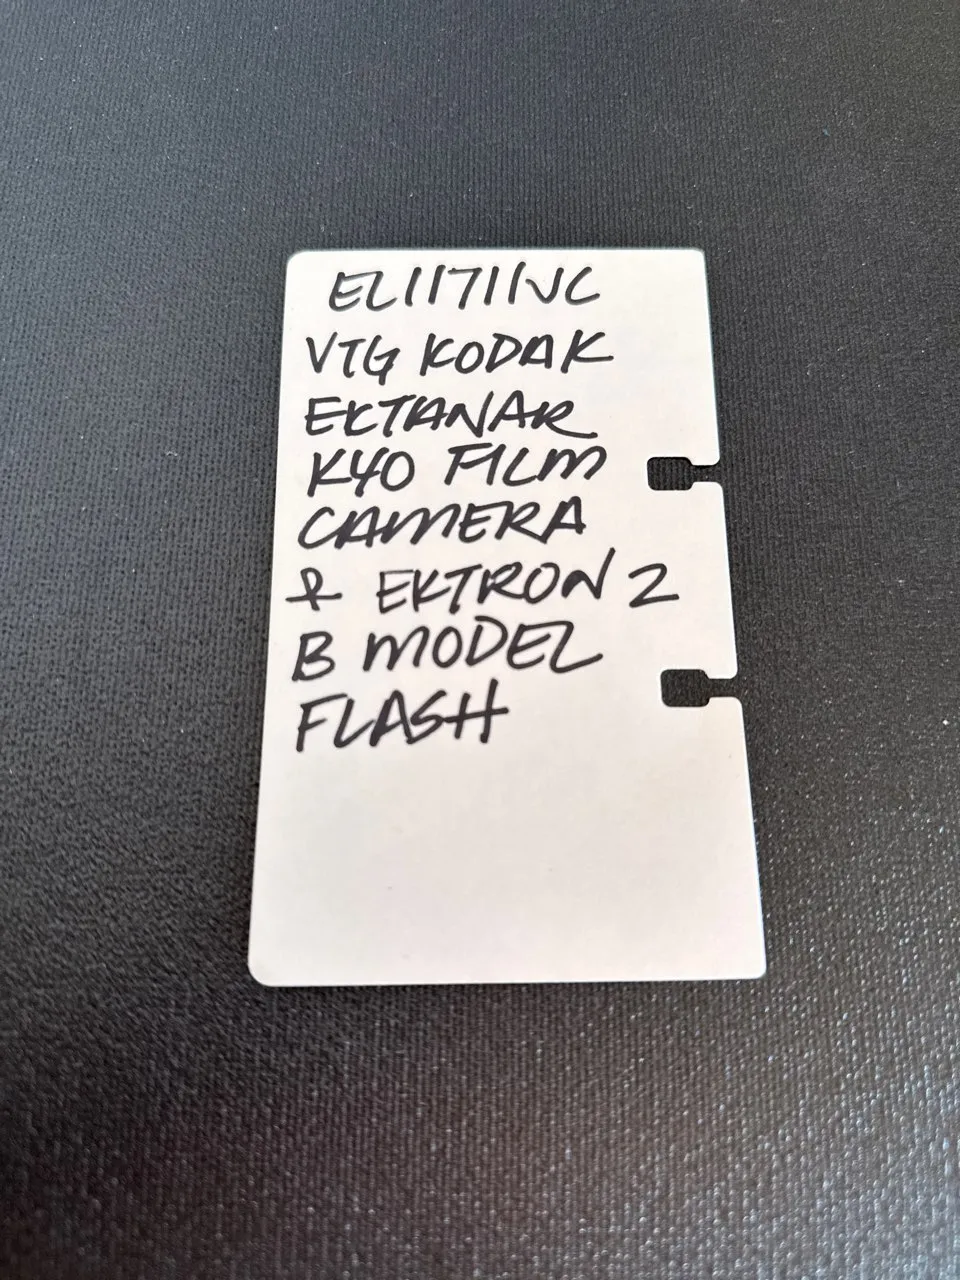 EL11711JC
VTG KODAK
EKTANAR
K40 FILM
CAMERA
& EKTRON 2
B MODEL
FLASH